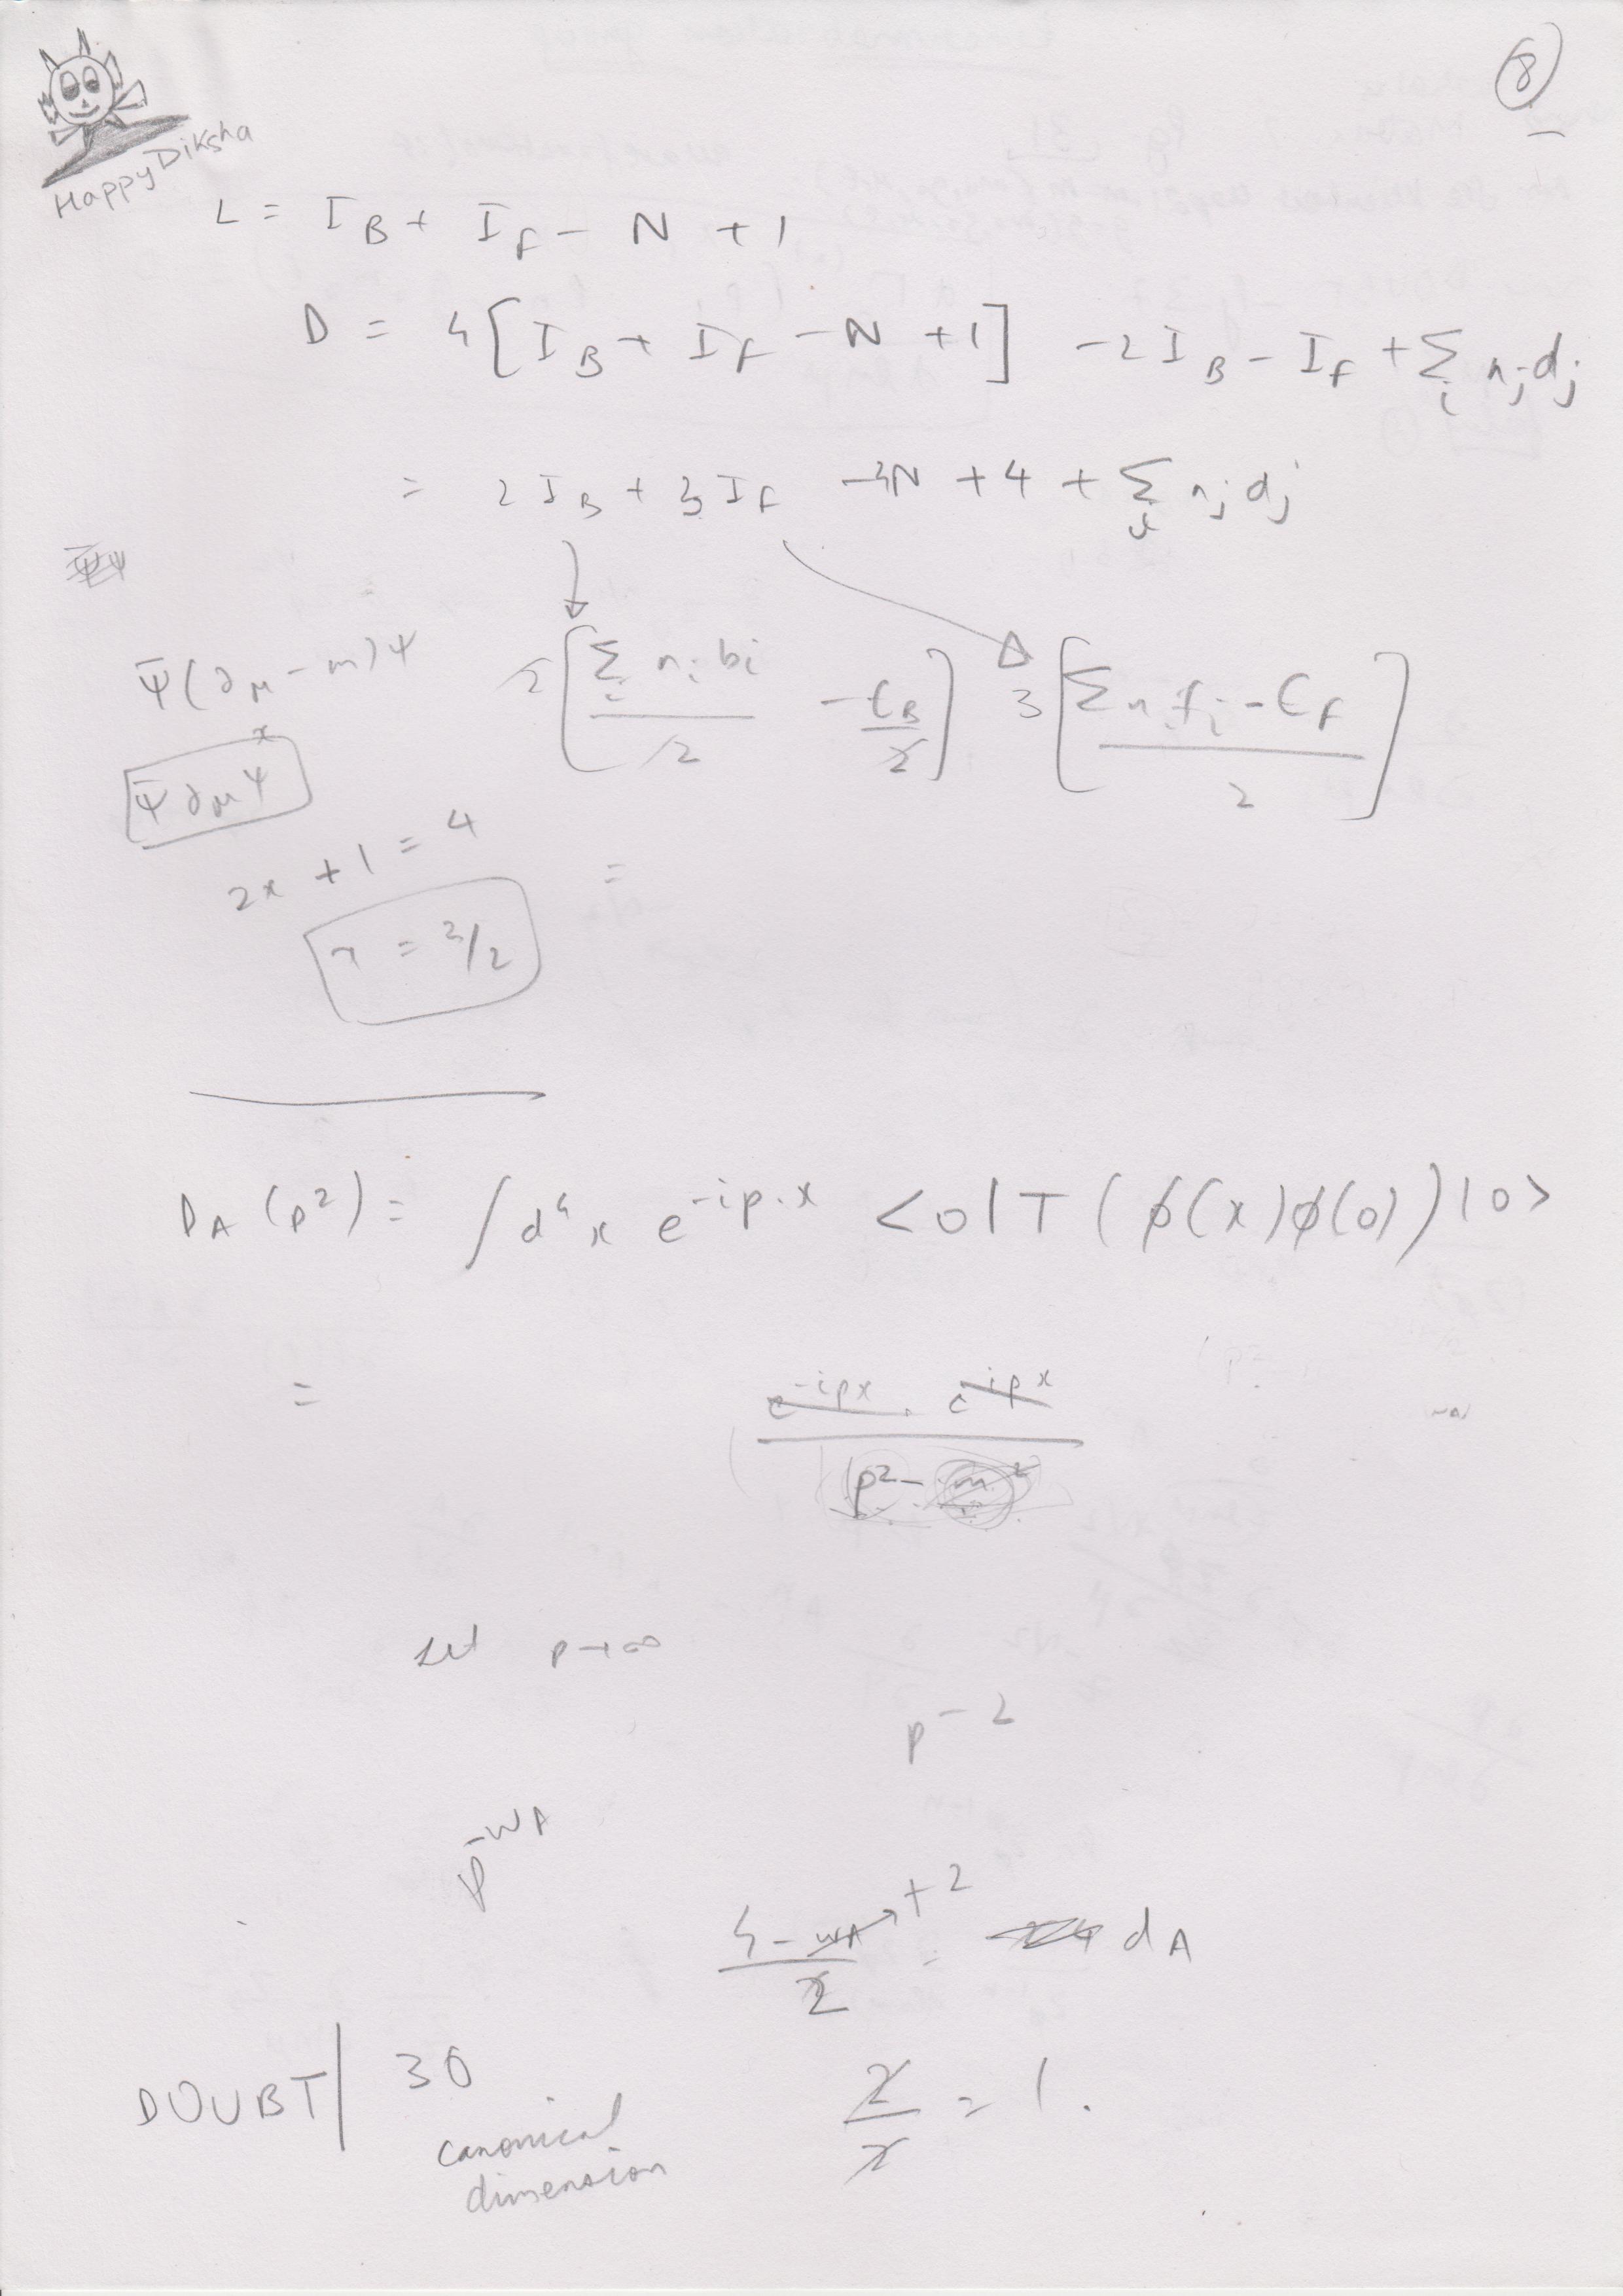 8
Happy Diksha
L = I_B + I_F - N + 1
D = 4[I_B + I_F - N + 1] - 2I_B - I_F + Σ_i n_j d_j
= 2I_B + 3I_F - 4N + 4 + Σ n_j d_j
Ψ̄(∂_M - m)Ψ
2[Σ_i n_i b_i / 2 - E_B / 2] 3[Σ n_i f_i - E_F / 2]
x
Ψ̄ ∂_M Ψ
2x + 1 = 4
=
x = 3/2
D_A(p²) = ∫ d⁴x e^{-ip·x} <0|T(ϕ(x)ϕ(0))|0>
= e^{-ipx} · e^{ipx} / p² - m²
Let p→∞
p^{-2}
p^{-W_A}
4 - W_A → +2 / 2 = d_A
DOUBT| 30
canonical
dimension
2/2 = 1.